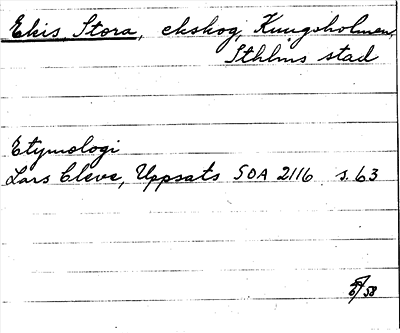 Ekis, Stora, ekskog, Kungsholmen,
Sthlms stad
Etymologi
Lars Cleve, Uppsats SOA 2116 s. 63
/58